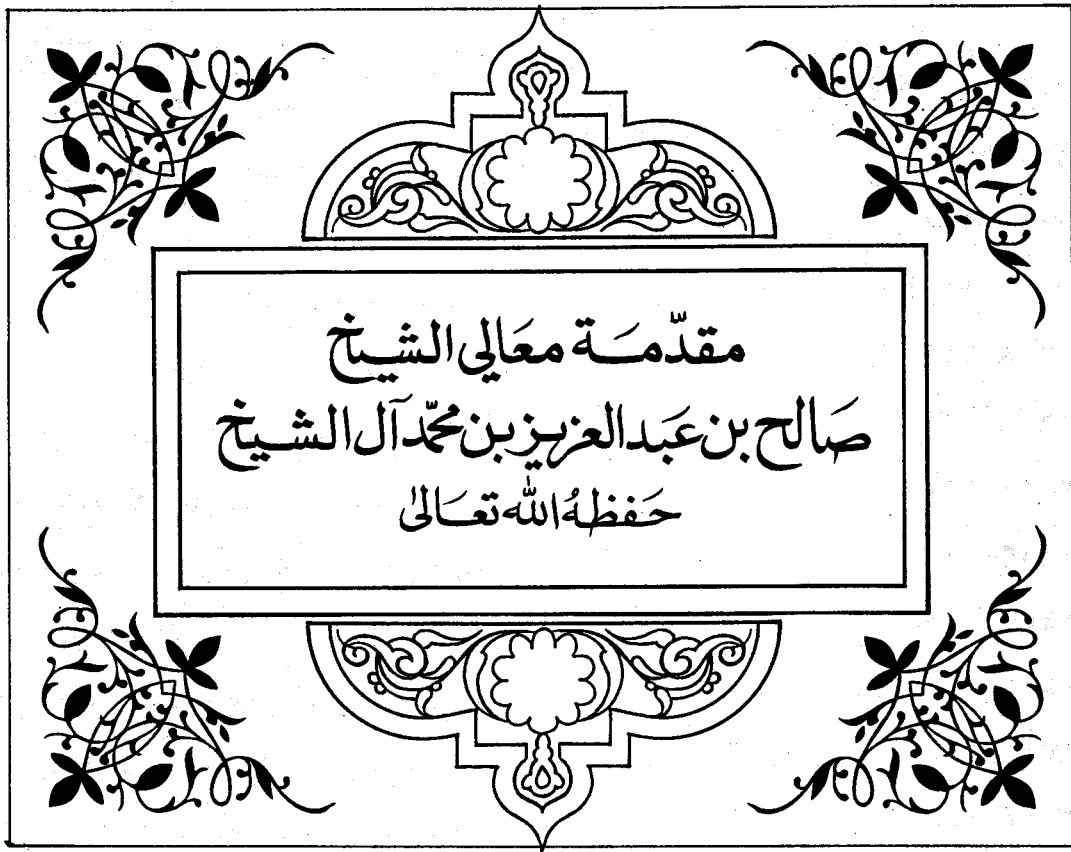 مقدّمَة معَالي الشيخ
صَالح بن عَبدالعزيز بن محمّد آل الشيخ
حَفظهُ اللّه تعَالىٰ